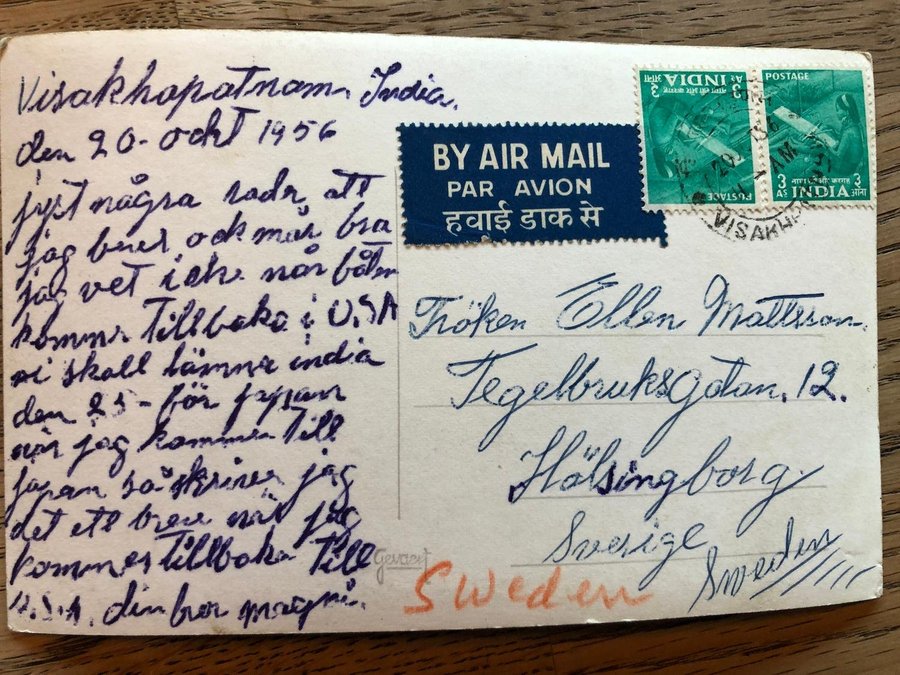 Visakhapatnam. India.
den 20- okt 1956
jyst några rader att
jag lever ock mår bra
jag vet icke når båten
kommer tillbaka i USA
vi skall lämna india
den 25- för japan
når jag kommer till
japan så skriver jag
det ett brev når jag
kommer tillbaka till
U.S.A. din bror magni.
BY AIR MAIL
PAR AVION
हवाई डाक से
3 AS INDIA
POSTAGE
POSTAGE
3 AS INDIA 3 आना
VISAKHAPATNAM
Fröken Ellen Mattsson.
Tegelbruksgatan. 12.
Hälsingborg
Sverige
Sweden
Gevaert
Sweden